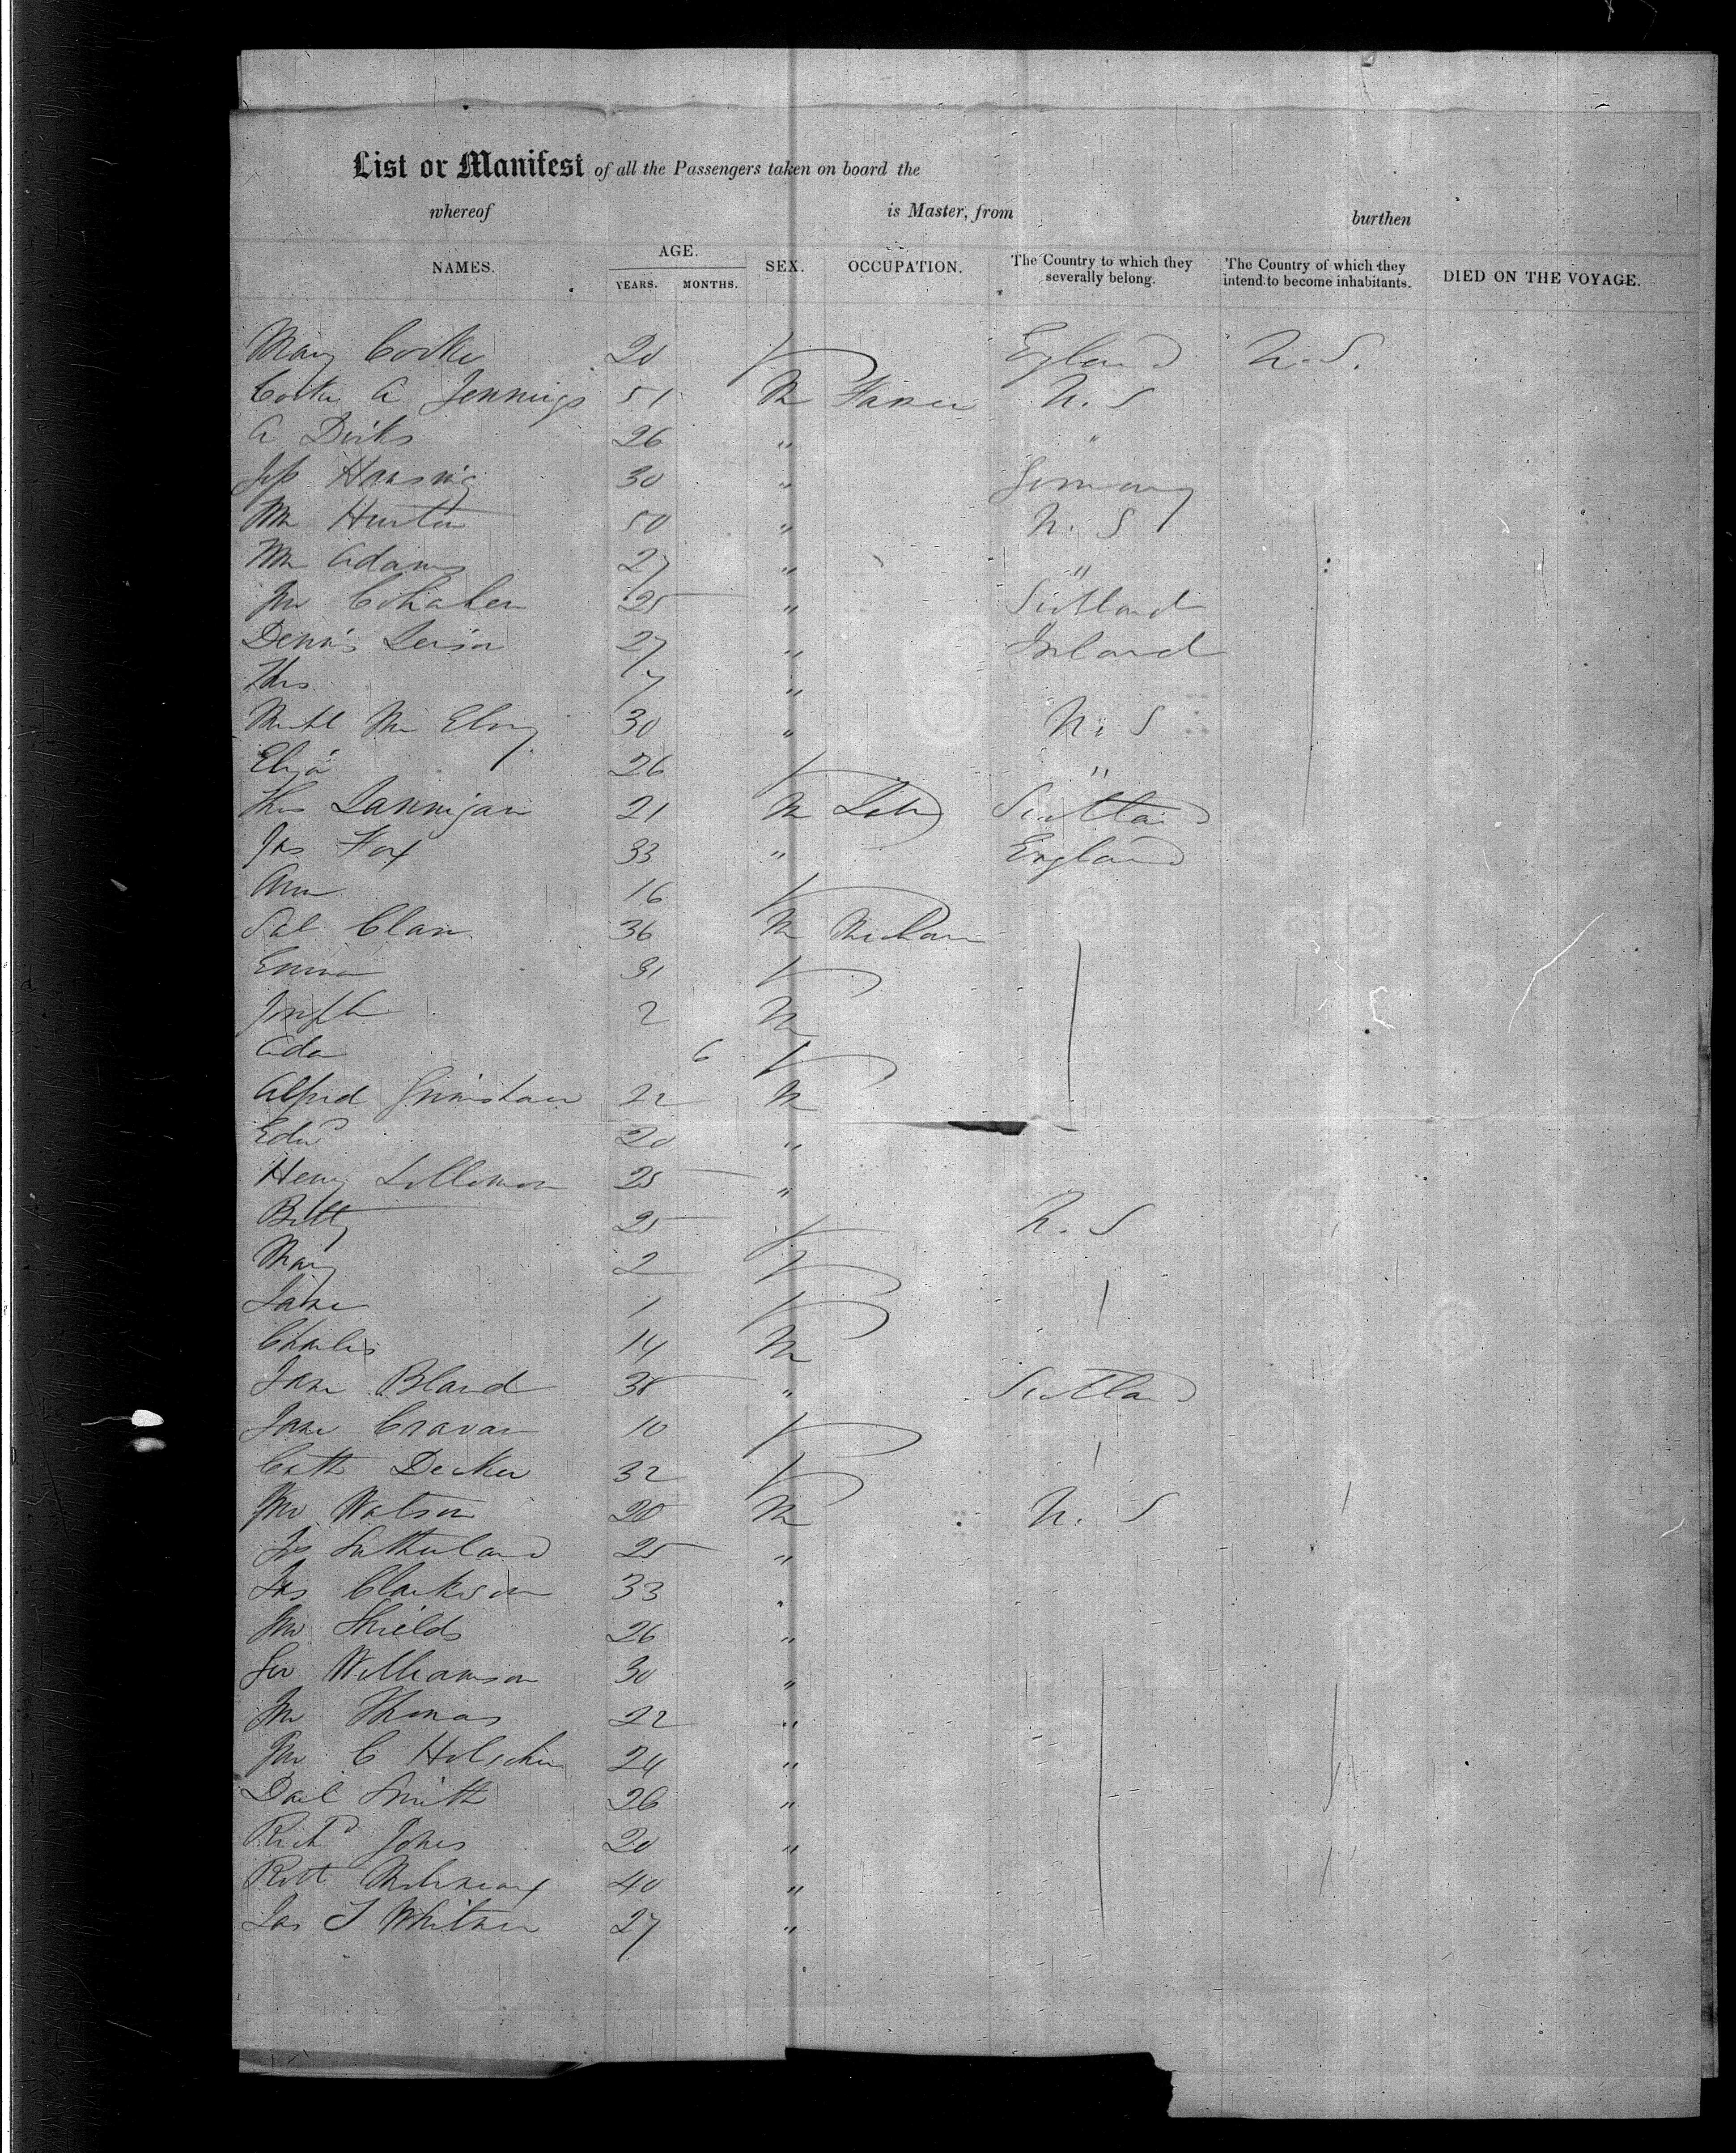 List or Manifest of all the Passengers taken on board the
whereof is Master, from burthen
NAMES. AGE. YEARS. MONTHS. SEX. OCCUPATION. The Country to which they severally belong. The Country of which they intend to become inhabitants. DIED ON THE VOYAGE.
Mary Cooke 20 England U.S.
A Jennings 51 M U.S
A Dirks 26 " "
30 " Germany
Wm Hurton 50 " U.S
Wm Adams 27 " "
Jno 25 " Scotland
Dennis 27 " Ireland
Thos 7 "
30 " U.S
Eliza 26 "
Thos Lannigan 21 M Lab Scotland
Jas Fox 33 " England
Ann 16
36 M
Emma 31
Joseph 2 M
Ada 6
Alfred Grimshaw 22 M
Edwd 20 "
Henry 25 "
Betty 25 U.S
Mary 2
Jane 1
Charles 14 M
Jane Bland 38 " Scotland
Jane Cravan 10
Cath Decker 32
Jno Watson 20 M U.S
Jas Sutherland 25 "
Jas Clarkson 33 "
Jno Shields 26 "
Geo Williamson 30 "
Jno Thomas 22 "
Jno C 24 "
Danl Smith 26 "
Richd Jones 20 "
Robt 40 "
Jas T 27 "